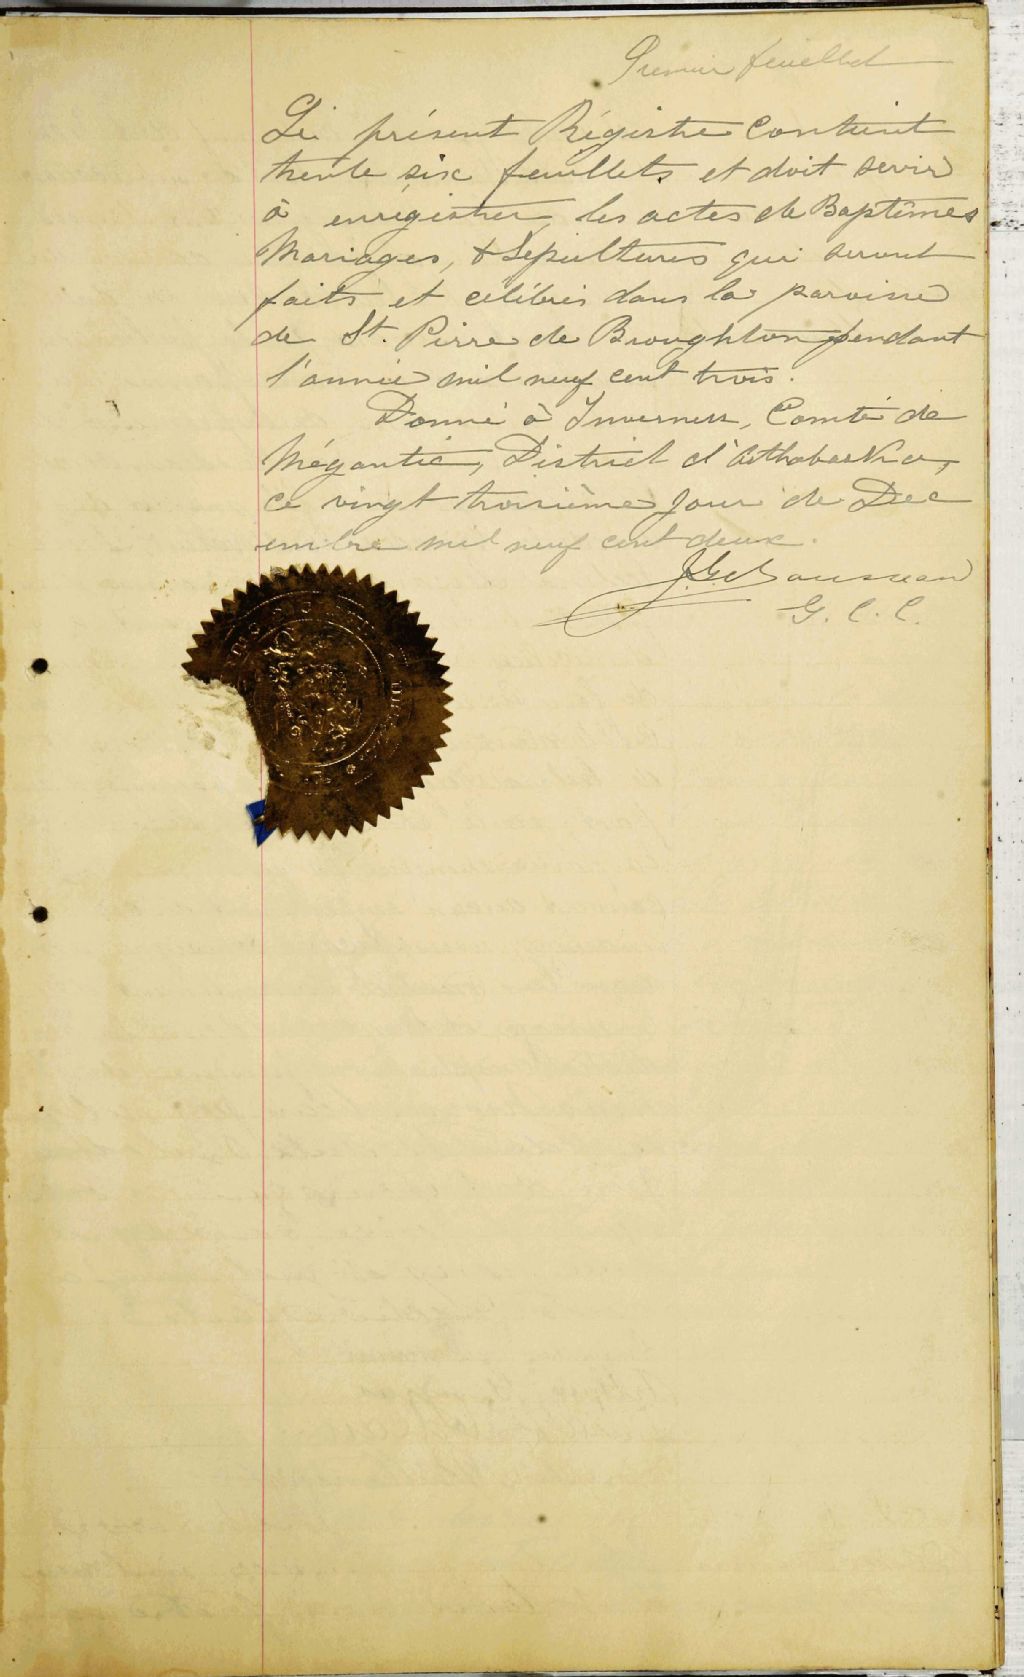 Premier feuillet
Le présent Régistre contient
trente six feuillets et doit servir
à enregistrer, les actes de Baptêmes
Mariages, & Sépultures qui seront
faits et célébrés dans la paroisse
de St. Pierre de Broughton pendant
l'année mil neuf cent trois.
Donné à Inverness, Comté de
Mégantic, District d'Arthabaska,
ce vingt troisième jour de Déc
embre mil neuf cent deux.
Rousseau
G. C. C.